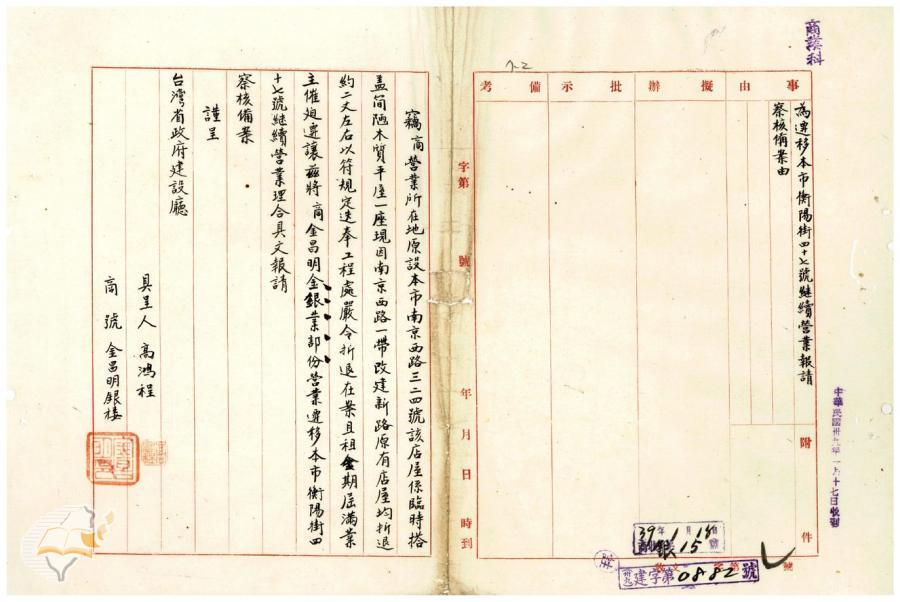 商業科
事由
擬辦
批示
備考
為遷移本市衡陽街四十七號继續營業報請
察核備案由
附
件
中華民國卅九年一月十七日收到
39年1月18日
銀15
收文 字第 號
卅九建字第0882號
字第 號
年 月 日 時到
竊商營業所在地原設本市南京西路三二四號該店屋係臨時搭
盖简陋木質平屋一座現因南京西路一帶改建新路原有店屋均折退
約二丈左右以符規定迭奉工程處嚴令折退在案且租金期屆滿業
主催廹遷讓兹將商金昌明金銀業部份營業遷移本市衡陽街四
十七號継續營業理合具文報請
察核備案
謹呈
台灣省政府建設廳
具呈人 高鴻程
商號 金昌明銀楼